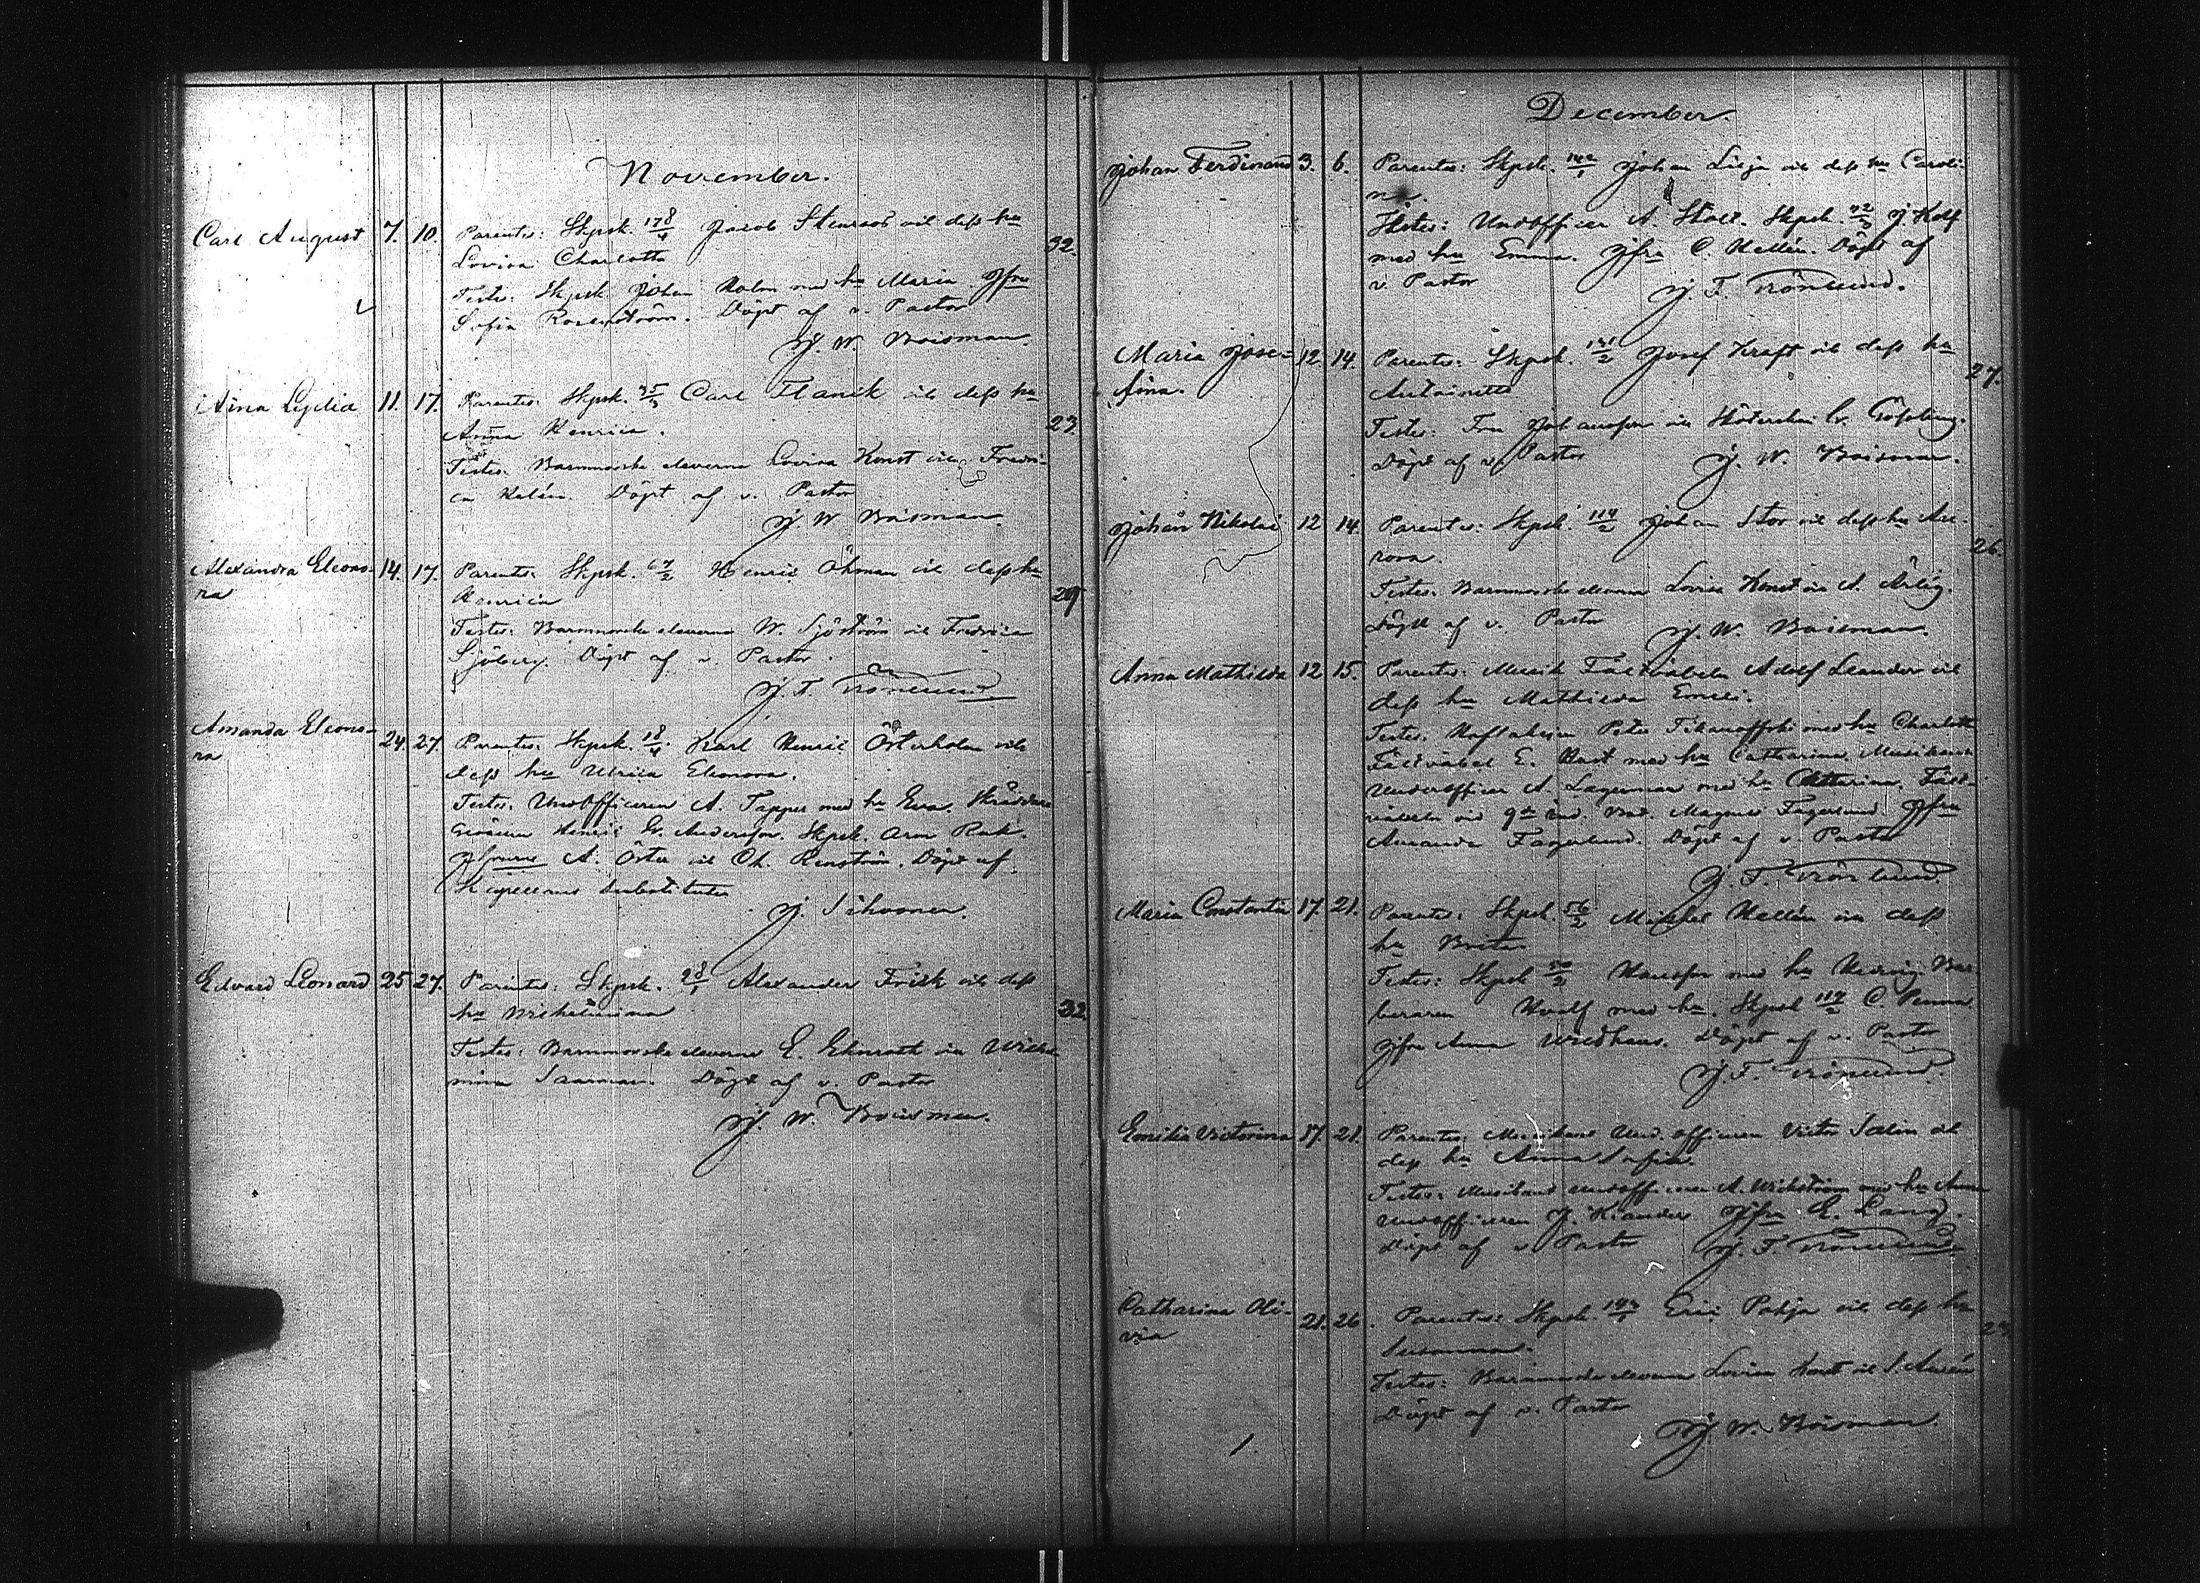 November.
Carl August 7. 10. Parentes: Skpsk. 178/4 Jacob Stenroos och dess hu
Lovisa Charlotta 32.
Testes: Skpsk Johan Holm med hu Maria. Jfru
Sofia Rosenström. Döpt af v. Pastor
J. W. Boisman.
Aina Lydia 11. 17. Parentes: Skpsk. Carl Flanik och dess hu
Anna Henrica. 23.
Testes: Barnmorske eleverna Lovisa Konst och Fredri-
ca Döpt af v. Pastor
J. W Boisman.
Alexandra Eleono- 14. 17. Parentes: Skpsk. 67/2 Henric Öhman och dess hu
ra Henrica
Testes: Barnmorske eleverna W. Sjöström och Fredrica
Sjöberg. Döpt af v. Pastor.
J. F. Trönlund
Amanda Eleono- 24. 27. Parentes: Skpsk. 18/4 Karl Henric Österholm och
ra dess hu Ulrica Eleonora.
Testes: Undofficeren A. Tapper med hu Eva.
Henric G. Andersson. Skpsk. Aron Rask.
Jfrurna A. Öster och Ch. Renström. Döpt af
Kapellans Substituten
J. Sihvonen.
Edvard Leonard 25 27. Parentes: Skpsk. 98/1 Alexander Frisk och dess
hu Wilhelmina 32.
Testes: Barnmorske eleverna E. Ehnroth och Wilhel
mina Saarman. Döpt af v. Pastor
J. W. Boisman.
December.
Johan Ferdinand 3. 6. Parentes: Skpsk. Johan Lilja och dess hu Caroli-
na.
Testes: Undofficer A. Skpsk. 72/3 J.
med hu Emma. Jfru C. Hellén. Döpt af
v. Pastor J. F. Trönlund.
Maria Jose- 12 14. Parentes: Skpsk. 141/2 Josef Kraft och dess hu
fina. Antoinette 27.
Testes: Fru Johansson och
Döpt af v Pastor J. W. Boisman.
Johan Nikolai 12 14. Parentes: Skpsk. 114/2 Johan Stor och dess hu Au-
rora. 26.
Testes: Barnmorske eleverna Lovisa Konst och A. Ärlig.
Döpt af v. Pastor J. W. Boisman.
Anna Mathilda 12 15. Parentes: Musik Fältväbeln Adolf Leander och
dess hu Mathilda Emeli.
Testes: Peter Tikanoffski med hu Charlotta
Fältväbel E. med hu Catharina. Musikant
Underofficer A. Lagerman med hu Catharina. Fält-
väbeln vid Magnus Fagerlund. Jfru
Amanda Fagerlund. Döpt af v Pastor
J. F. Trönlund.
Maria Constantia 17. 21. Parentes: Skpsk. 56/2 Michel Hellén och dess
hu Brita
Testes: Skpsk Hansson med hu Hedvig. Bar-
beraren med hu. Skpsk 114/2 C.
Jfru Anna Wredhaus. Döpt af v. Pastor
J. F. Trönlund.
Emilia Victorina 17. 21. Parentes: Musikant Und. officeren Victor Salin och
dess hu Anna Sofia.
Testes: Musikant undofficeren A. Wickström med hu Anna
undofficeren J. Kiander. Jfru E. Lang.
Döpt af v Pastor J. F. Trönlund.
Catharina Oli- 21. 26. Parentes: Skpsk. Eric Pohja och dess hu
via Susanna.
Testes: Barnmorske eleverna Lovisa Konst och
Döpt af v. Pastor
J. W. Boisman.